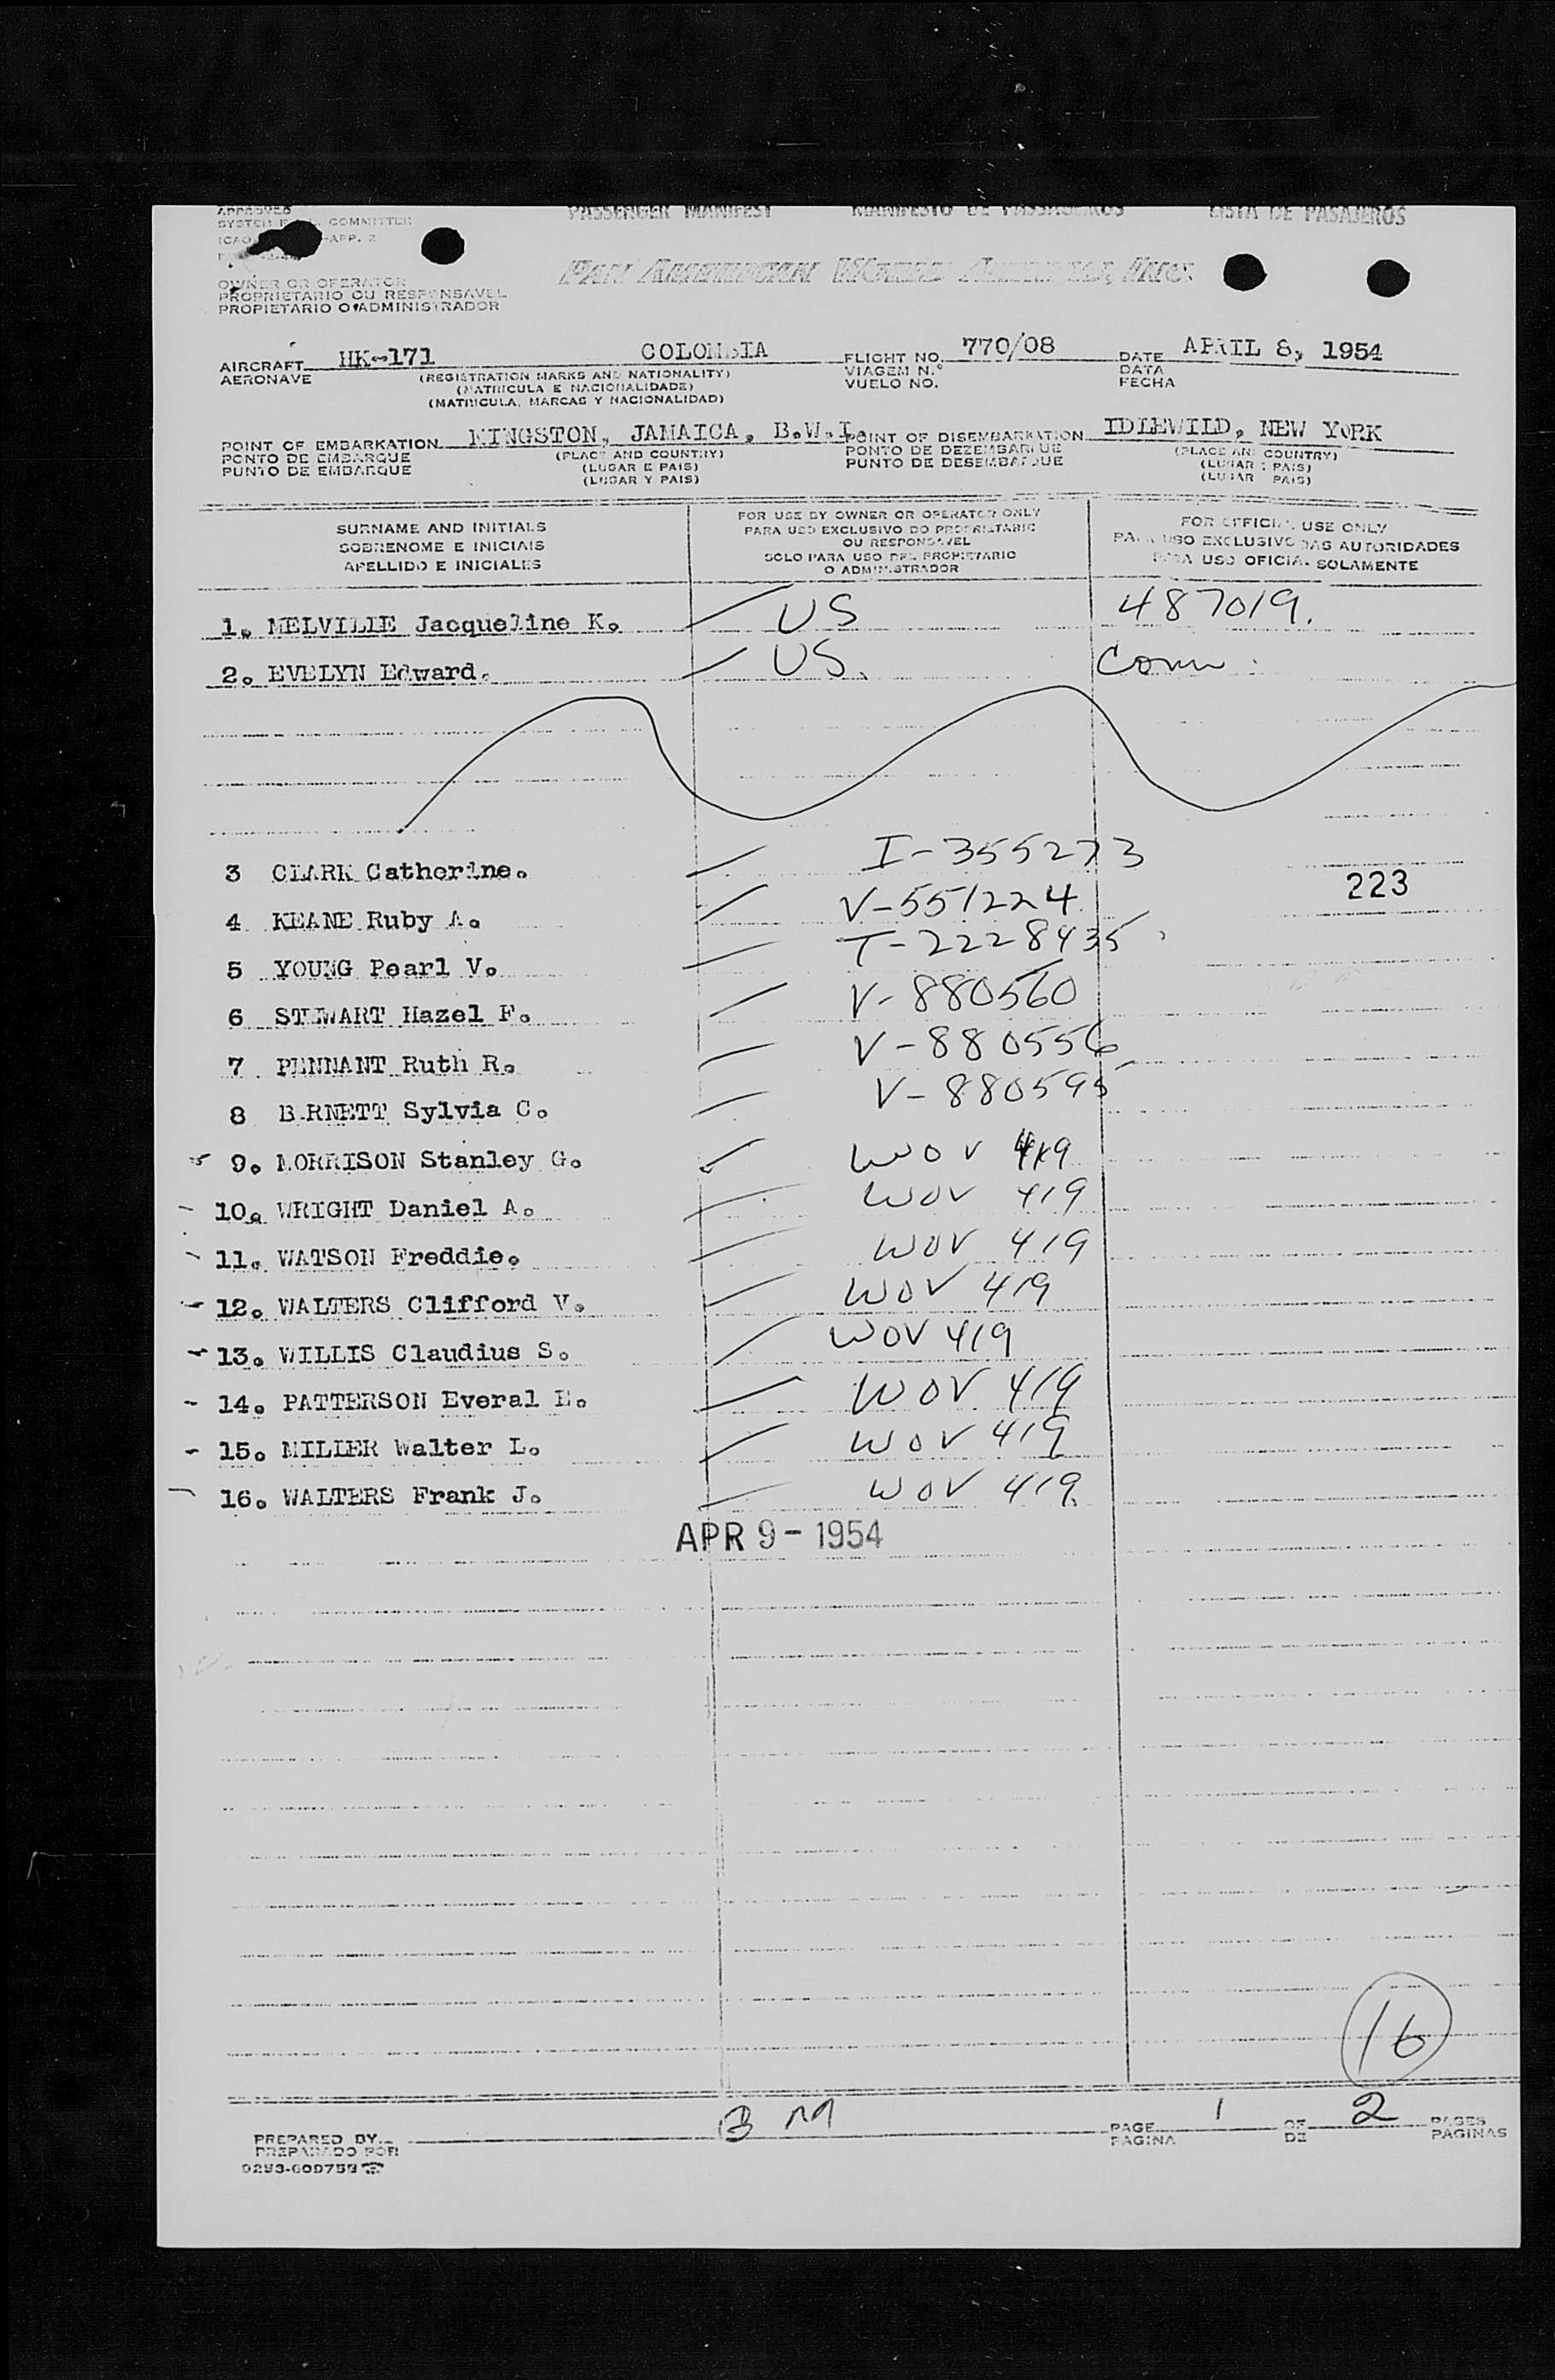 APPROVED PASSENGER MANIFEST MANIFESTO DE PASSAGEROS LISTA DE PASAJEROS
COMMITTEE
ICAO -APP. 2
PAN AMERICAN WORLD AIRWAYS, INC.
OWNER OR OPERATOR
PROPRIETARIO OU RESPONSAVEL
PROPIETARIO O ADMINISTRADOR
AIRCRAFT HK-171 COLOMBIA FLIGHT NO. 770/08 DATE APRIL 8, 1954
AERONAVE (REGISTRATION MARKS AND NATIONALITY) VIAGEM N.° DATA
(MATRICULA E NACIONALIDADE) VUELO NO. FECHA
(MATRICULA, MARCAS Y NACIONALIDAD)
POINT OF EMBARKATION KINGSTON, JAMAICA, B.W.I. POINT OF DISEMBARKATION IDLEWILD, NEW YORK
PONTO DE EMBARQUE (PLACE AND COUNTRY) PONTO DE DEZEMBARQUE (PLACE AND COUNTRY)
PUNTO DE EMBARQUE (LUGAR E PAIS) PUNTO DE DESEMBARQUE (LUGAR E PAIS)
(LUGAR Y PAIS) (LUGAR PAIS)
SURNAME AND INITIALS FOR USE BY OWNER OR OPERATOR ONLY FOR OFFICIAL USE ONLY
SOBRENOME E INICIAIS PARA USO EXCLUSIVO DO PROPRIETARIO PARA USO EXCLUSIVO DAS AUTORIDADES
APELLIDO E INICIALES OU RESPONSAVEL PARA USO OFICIAL SOLAMENTE
SOLO PARA USO DEL PROPIETARIO
O ADMINISTRADOR
1. MELVILLE Jacqueline K. US 487019.
2. EVELYN Edward. US. Conn.
3 CLARK Catherine. I-355273
4 KEANE Ruby A. V-551224 223
5 YOUNG Pearl V. T-2228435
6 STEWART Hazel F. V-880560
7 PENNANT Ruth R. V-880556
8 BARNETT Sylvia C. V-880595
9. MORRISON Stanley G. WOV 419
- 10. WRIGHT Daniel A. WOV 419
- 11. WATSON Freddie. WOV 419
- 12. WALTERS Clifford V. WOV 419
- 13. WILLIS Claudius S. WOV 419
- 14. PATTERSON Everal E. WOV 419
- 15. MILLER Walter L. WOV 419
- 16. WALTERS Frank J. WOV 419.
APR 9 - 1954
16
PREPARED BY PAGE 1 OF 2 PAGES
PREPARADO POR PAGINA DE PAGINAS